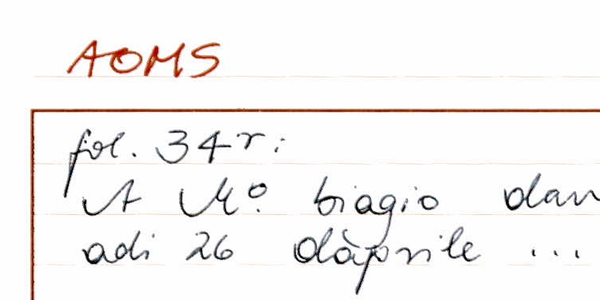 AOMS
fol. 34r:
A Mº. biagio dan
adi 26 dàprile ...